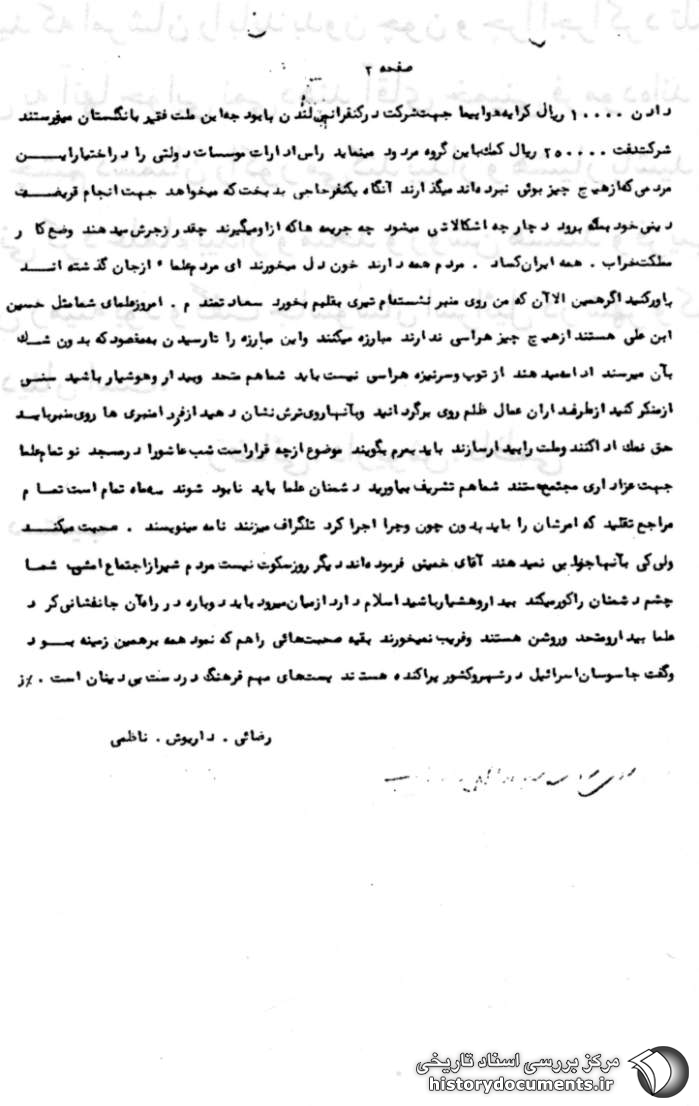 صفحه ۲
دادن ۱۰۰۰۰ ریال کرایه هواپیما جهت شرکت در کنفرانس لندن با بودجه این ملت فقیر بانگستان میفرستند
شرکت نفت ۲۵۰۰۰۰ ریال کمک باین گروه مردود مینماید راس ادارات موسسات دولتی را در اختیار این
مردمی که از هیچ چیز بوئی نبرده اند میگذارند آنگاه یکنفر حاجی بدبخت که میخواهد جهت انجام فریضه
دینی خود بمکه برود دچار چه اشکالاتی میشود چه جریمه ها که از او میگیرند چقدر زجرش میدهند وضع کار
مملکت خراب . همه ایران کساد . مردم همه دارند خون دل میخورند ای مردم علماء از جان گذشته اند
باور کنید اگر همین الاآن که من روی منبر نشسته ام تیری بقلبم بخورد سعادتمندم . امروز علمای شما مثل حسین
ابن علی هستند از هیچ چیز هراسی ندارند مبارزه میکنند و این مبارزه را تا رسیدن به مقصود که بدون شک
بآن میرسند ادامه میدهند از توپ و سرنیزه هراسی نیست باید شما هم متحد و بیدار و هوشیار باشید سنس
از منکر کنید از طرفداران عمال ظلم روی برگردانید و بآنها روی ترش نشان دهید از فردا منبری ها روی منبر باید
حق نمک ادا کنند و ملت را بیدار سازند باید بمردم بگویند موضوع از چه قرار است شب عاشورا در مسجد نو تمام علما
جهت عزاداری مجتمع هستند شما هم تشریف بیاورید دشمنان علما باید نابود شوند سه ماه تمام است تمام
مراجع تقلید که امرشان را باید بدون چون و چرا اجرا کرد تلگراف میزنند نامه مینویسند . صحبت میکنند
ولی کی بآنها جوابی نمیدهند آقای خمینی فرموده اند دیگر روز سکوت نیست مردم شیراز اجتماع امشب شما
چشم دشمنان را کور میکند بیدار و هشیار باشید اسلام دارد از میان میرود باید دوباره در راه آن جانفشانی کرد
علما بیدار و متحد و روشن هستند و فریب نمیخورند بقیه صحبت هائی را هم که نمود همه بر همین زمینه بود
و گفت جاسوسان اسرائیل در شهر و کشور پراکنده هستند پست های مهم فرهنگ در دست بی دینان است . ٪ز
رضائی . داریوش . ناظمی
مرکز بررسی اسناد تاریخی
historydocuments.ir